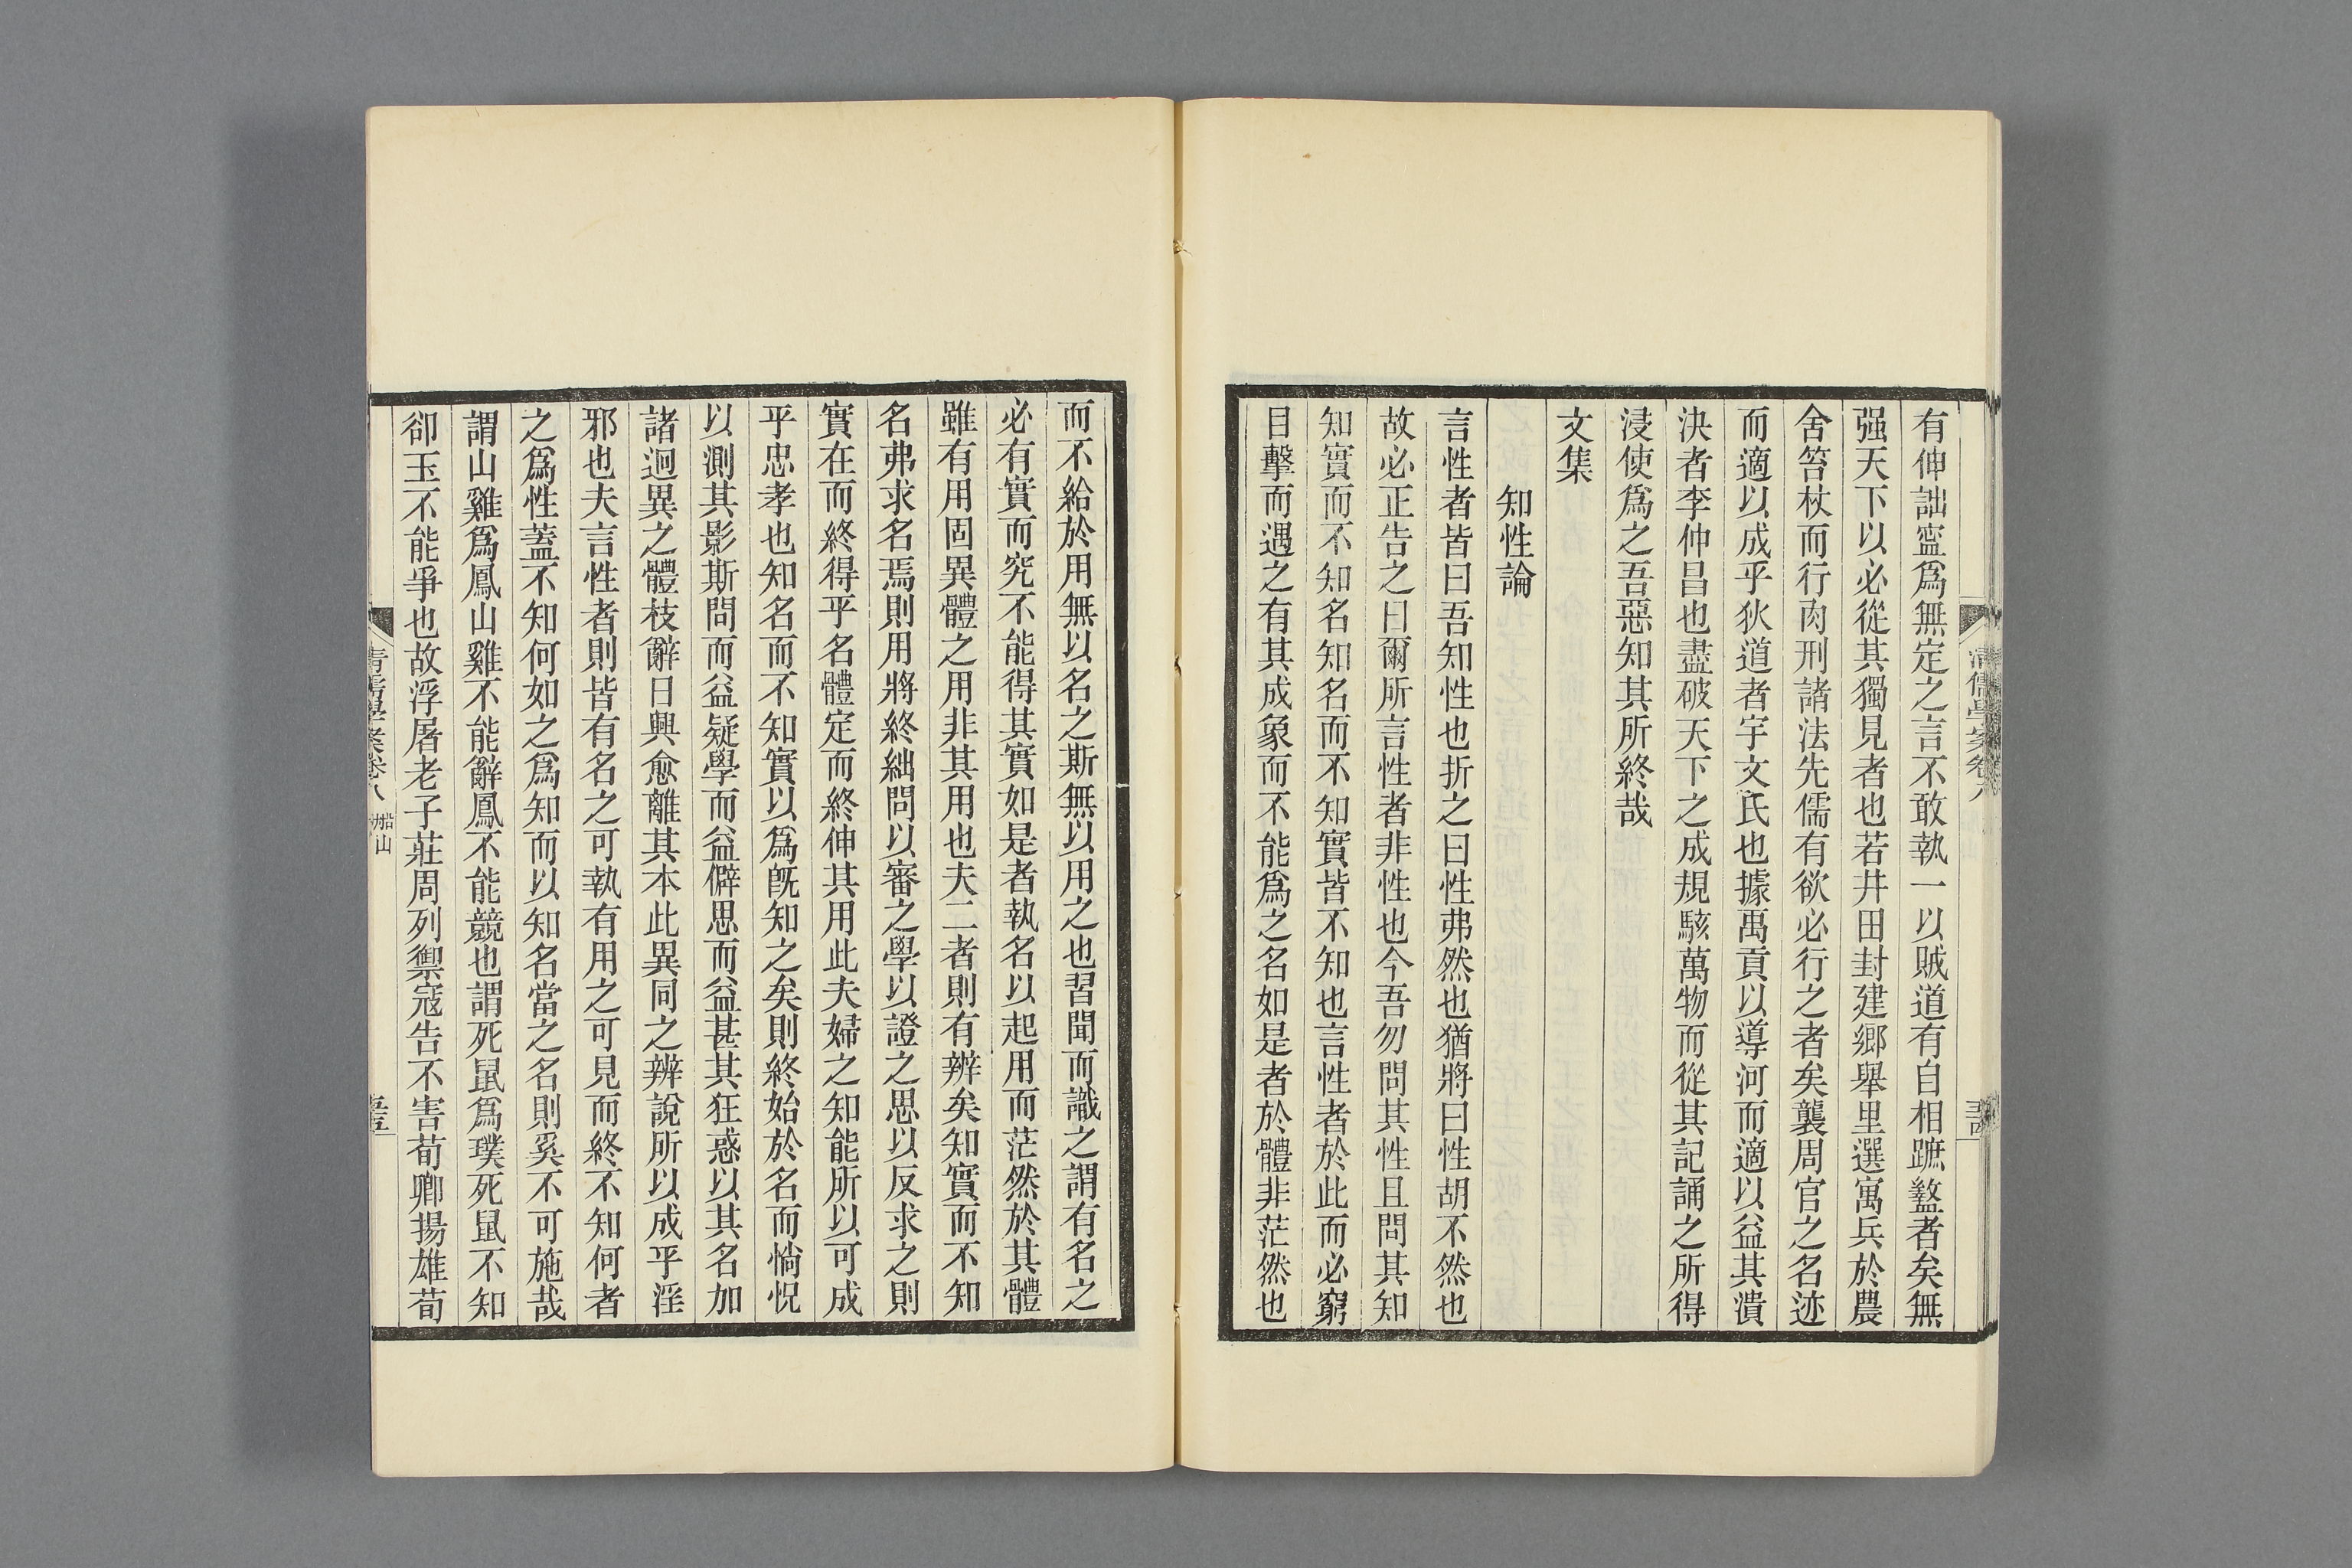 有伸詘寍爲無定之言不敢執一以賊道有自相蹠盭者矣無
强天下以必從其獨見者也若井田封建鄉舉里選寓兵於農
舍笞杖而行肉刑諸法先儒有欲必行之者矣襲周官之名迹
而適以成乎狄道者宇文氏也據禹貢以導河而適以益其潰
決者李仲昌也盡破天下之成規駭萬物而從其記誦之所得
浸使爲之吾惡知其所終哉
文集
知性論
言性者皆曰吾知性也折之曰性弗然也猶將曰性胡不然也
故必正告之曰爾所言性者非性也今吾勿問其性且問其知
知實而不知名知名而不知實皆不知也言性者於此而必窮
目擊而遇之有其成象而不能爲之名如是者於體非茫然也
而不給於用無以名之斯無以用之也習聞而識之謂有名之
必有實而究不能得其實如是者執名以起用而茫然於其體
雖有用固異體之用非其用也夫二者則有辨矣知實而不知
名弗求名焉則用將終絀問以審之學以證之思以反求之則
實在而終得乎名體定而終伸其用此夫婦之知能所以可成
乎忠孝也知名而不知實以爲旣知之矣則終始於名而惝怳
以測其影斯問而益疑學而益僻思而益甚其狂惑以其名加
諸迥異之體枝辭日興愈離其本此異同之辨說所以成乎淫
邪也夫言性者則皆有名之可執有用之可見而終不知何者
之爲性蓋不知何如之爲知而以知名當之名則奚不可施哉
謂山雞爲鳳山雞不能辭鳳不能競也謂死鼠爲璞死鼠不知
卻玉不能爭也故浮屠老子莊周列禦寇告不害荀卿揚雄荀
清儒學案卷八 船山